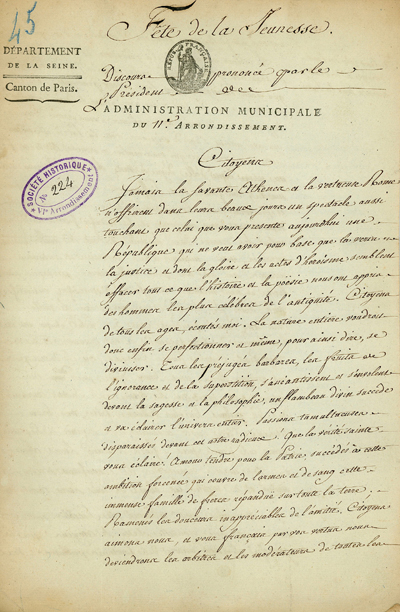 45
Fête de la Jeunesse.
DÉPARTEMENT
DE LA SEINE.
Canton de Paris.
Discours prononcé par le
Président de
L'ADMINISTRATION MUNICIPALE
DU 11e. ARRONDISSEMENT.
SOCIÉTÉ HISTORIQUE
No 224
VIe Arrondissement
Citoyens
Jamais la savante Athenes et la vertueuse Rome
n'offrirent dans leurs beaux jours un spectacle aussi
touchant que celui que vous presente aujourdhui une
République qui ne veut avoir pour base que la vertu et
la justice et dont la gloire et les actes d'héroïsme semblent
effacer tout ce que l'histoire et la poësie nous ont appris
des hommes les plus célébres de l'antiquité. Citoyens
de tous les ages, écoutés moi. La nature entiere voudroit
donc enfin se perfectionner et même, pour ainsi dire, se
diviniser. Tous les préjugés barbares, les fruits de
l'ignorance et de la superstition, s'anéantissent et s'envolent
devant la sagesse et la philosophie, un flambeau divin succède
et va éclairer l'univers entier. Passions tumultueuses
disparaissés devant cet astre radieux! Que la vérité sainte
vous éclaire. Amour tendre pour la Patrie, succédés à cette
ambition forcenée qui couvre de larmes et de sang cette
immense famille de freres répandue sur toute la terre;
Ramenés les douceurs inappréciables de l'amitié. Citoyens
aimons nous, et vous français par vos vertus vous
deviendrez les arbitres et les modérateurs de toutes les